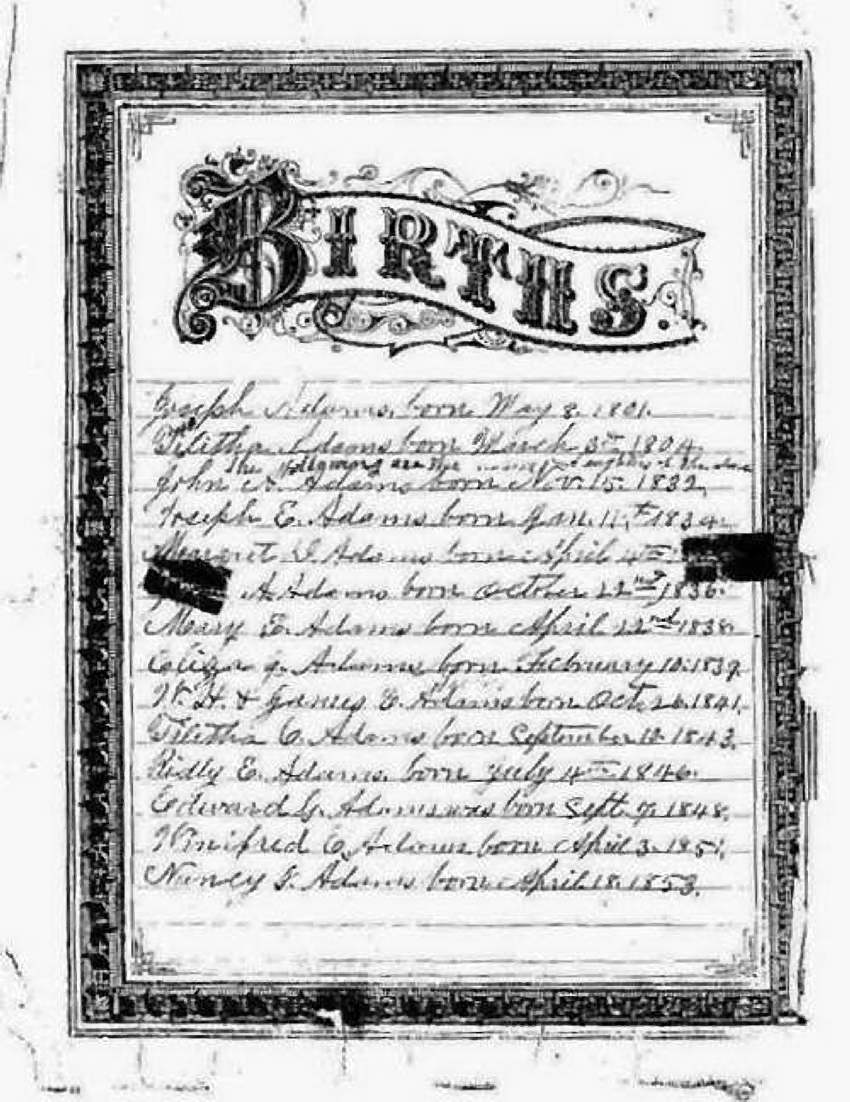 BIRTHS.
Joseph Adams, born May 8, 1801.
Tilitha Adams born March 3rd 1804.
the following are the
John Adams born Nov. 15. 1832.
Joseph E. Adams born Jan. 11th 1834.
Margret Adams born April 4th
A. Adams born October 22nd 1836.
Mary E. Adams born April 22nd 1838.
Eliza J. Adams born February 10. 1839.
W. H. & James E. Adams born Oct. 26. 1841.
Tilitha C. Adams born September 10. 1843.
Ridly E. Adams, born July 4th 1846.
Edward G. Adams was born Sept. 7. 1848.
Winifred C. Adams born April 3. 1851.
Nancy Adams born April 18. 1853.